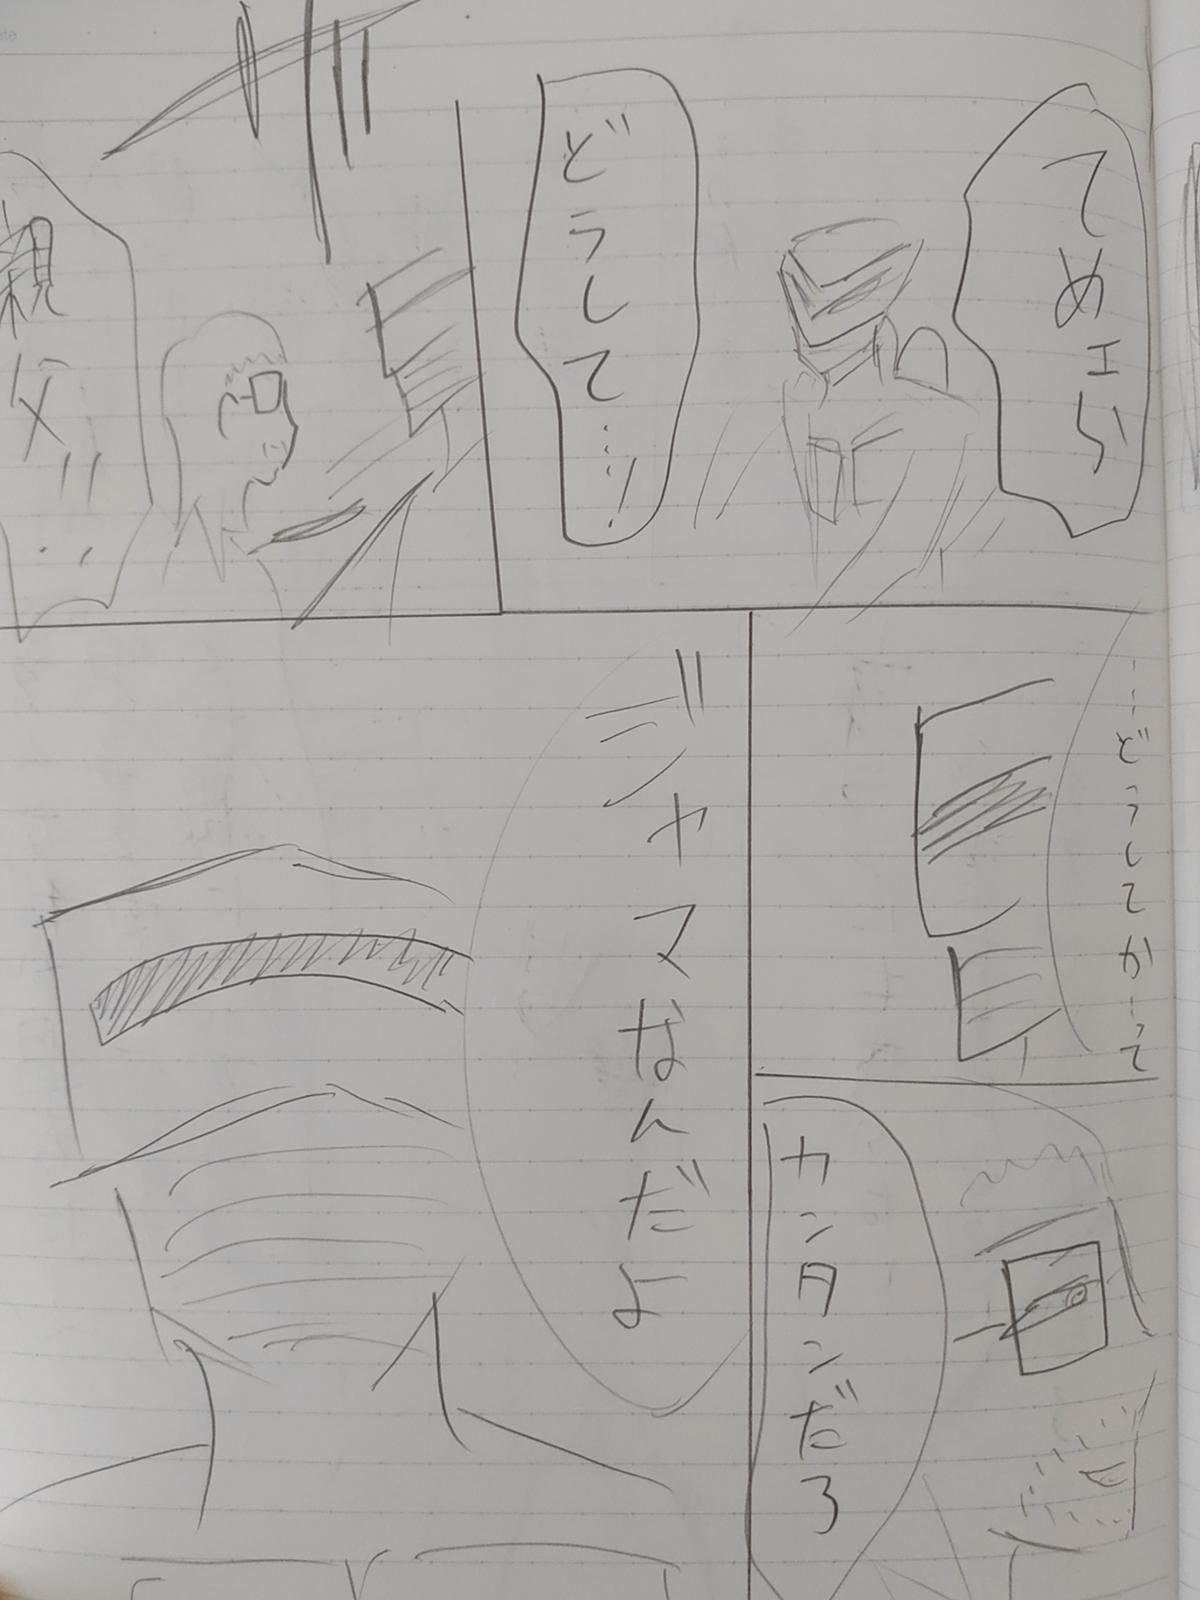 てめェら
どうして…!
親父!!
……どうしてか…って
カンタンだろ
ジャマなんだよ